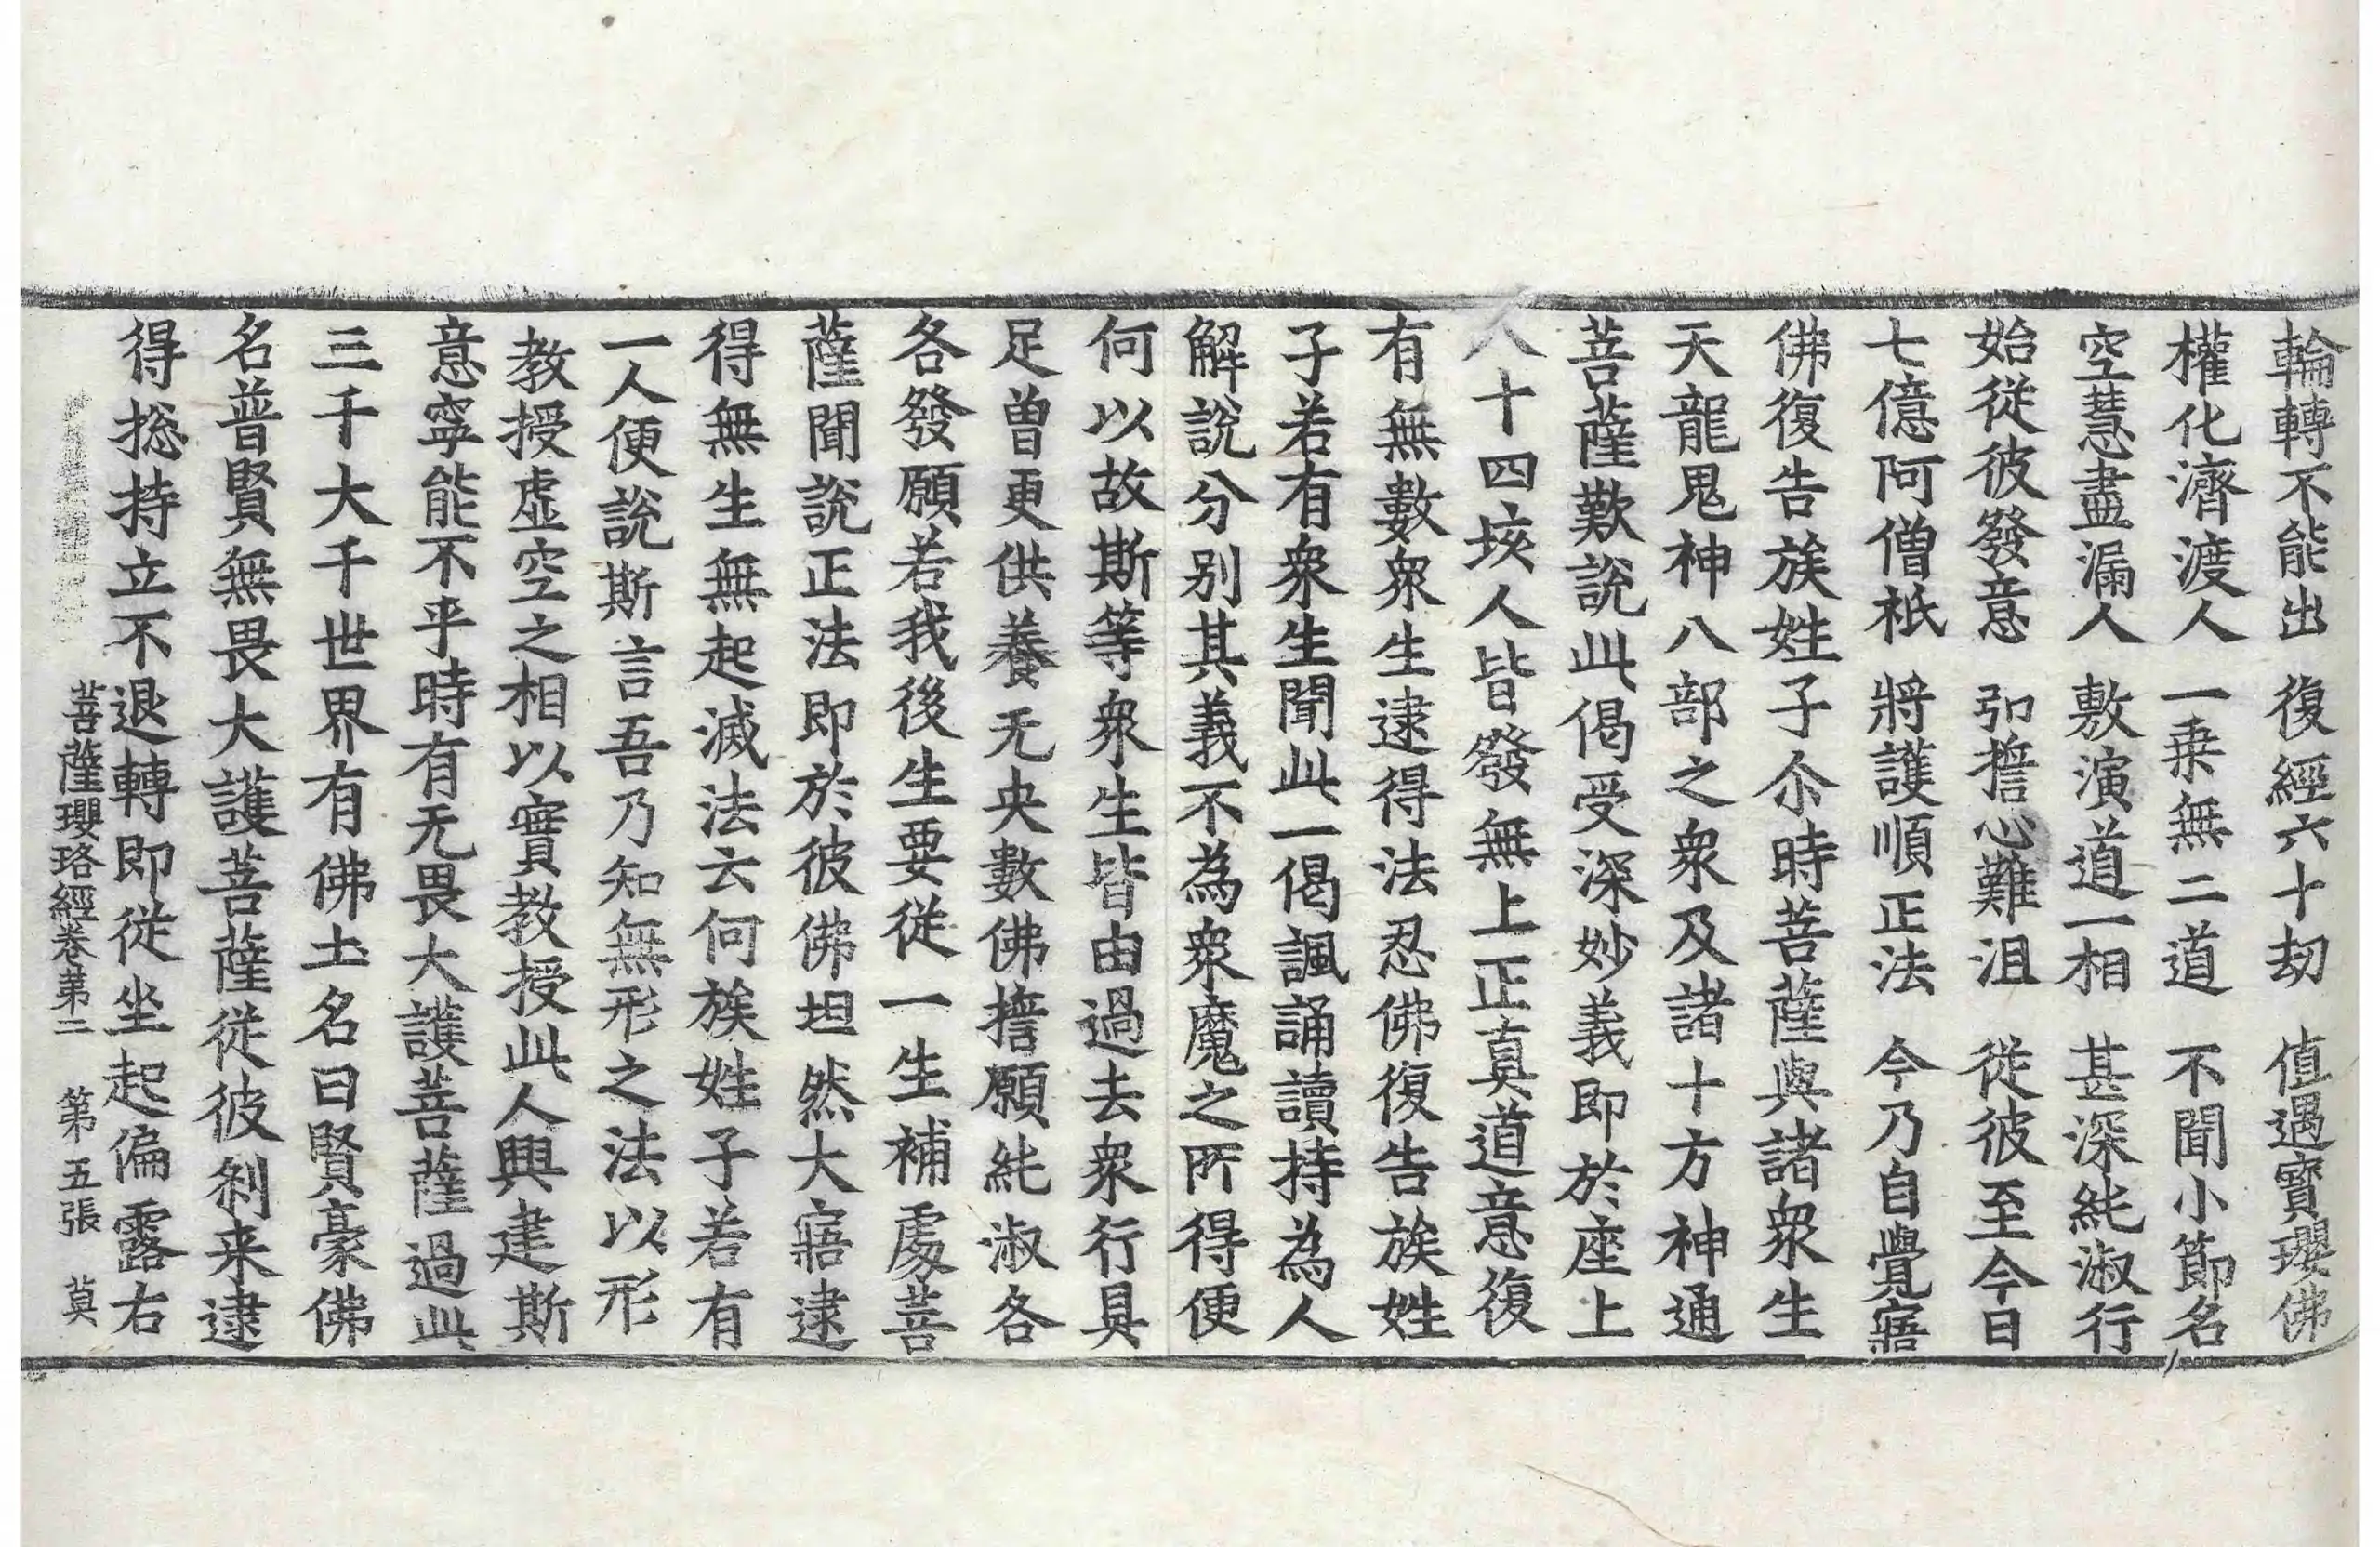 輪轉不能出　復經六十劫　值遇寶瓔佛
權化濟渡人　一乗無二道　不聞小節名
空慧盡漏人　敷演道一相　甚深純淑行
始從彼發意　弘誓心難沮　從彼至今日
七億阿僧祇　將護順正法　今乃自覺寤
佛復告族姓子尒時菩薩與諸衆生
天龍鬼神八部之衆及諸十方神通
菩薩歎說此偈受深妙義即於座上
八十四垓人皆發無上正真道意復
有無數衆生逮得法忍佛復告族姓
子若有衆生聞此一偈諷誦讀持為人
解說分別其義不為衆魔之所得便
何以故斯等衆生皆由過去衆行具
足曽更供養无央數佛誓願純淑各
各發願若我後生要從一生補處菩
薩聞說正法即於彼佛坦然大寤逮
得無生無起滅法云何族姓子若有
一人便說斯言吾乃知無形之法以形
教授虛空之相以實教授此人興建斯
意寧能不乎時有无畏大護菩薩過此
三千大千世界有佛土名曰賢豪佛
名普賢無畏大護菩薩從彼剎来逮
得捴持立不退轉即從坐起偏露右
菩薩瓔珞經卷苐二　第五張　莫